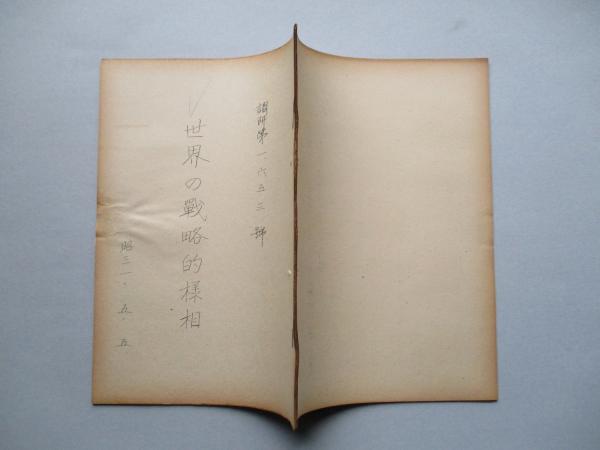 調研第一六五三號
世界の戰略的様相
昭三一・五・五